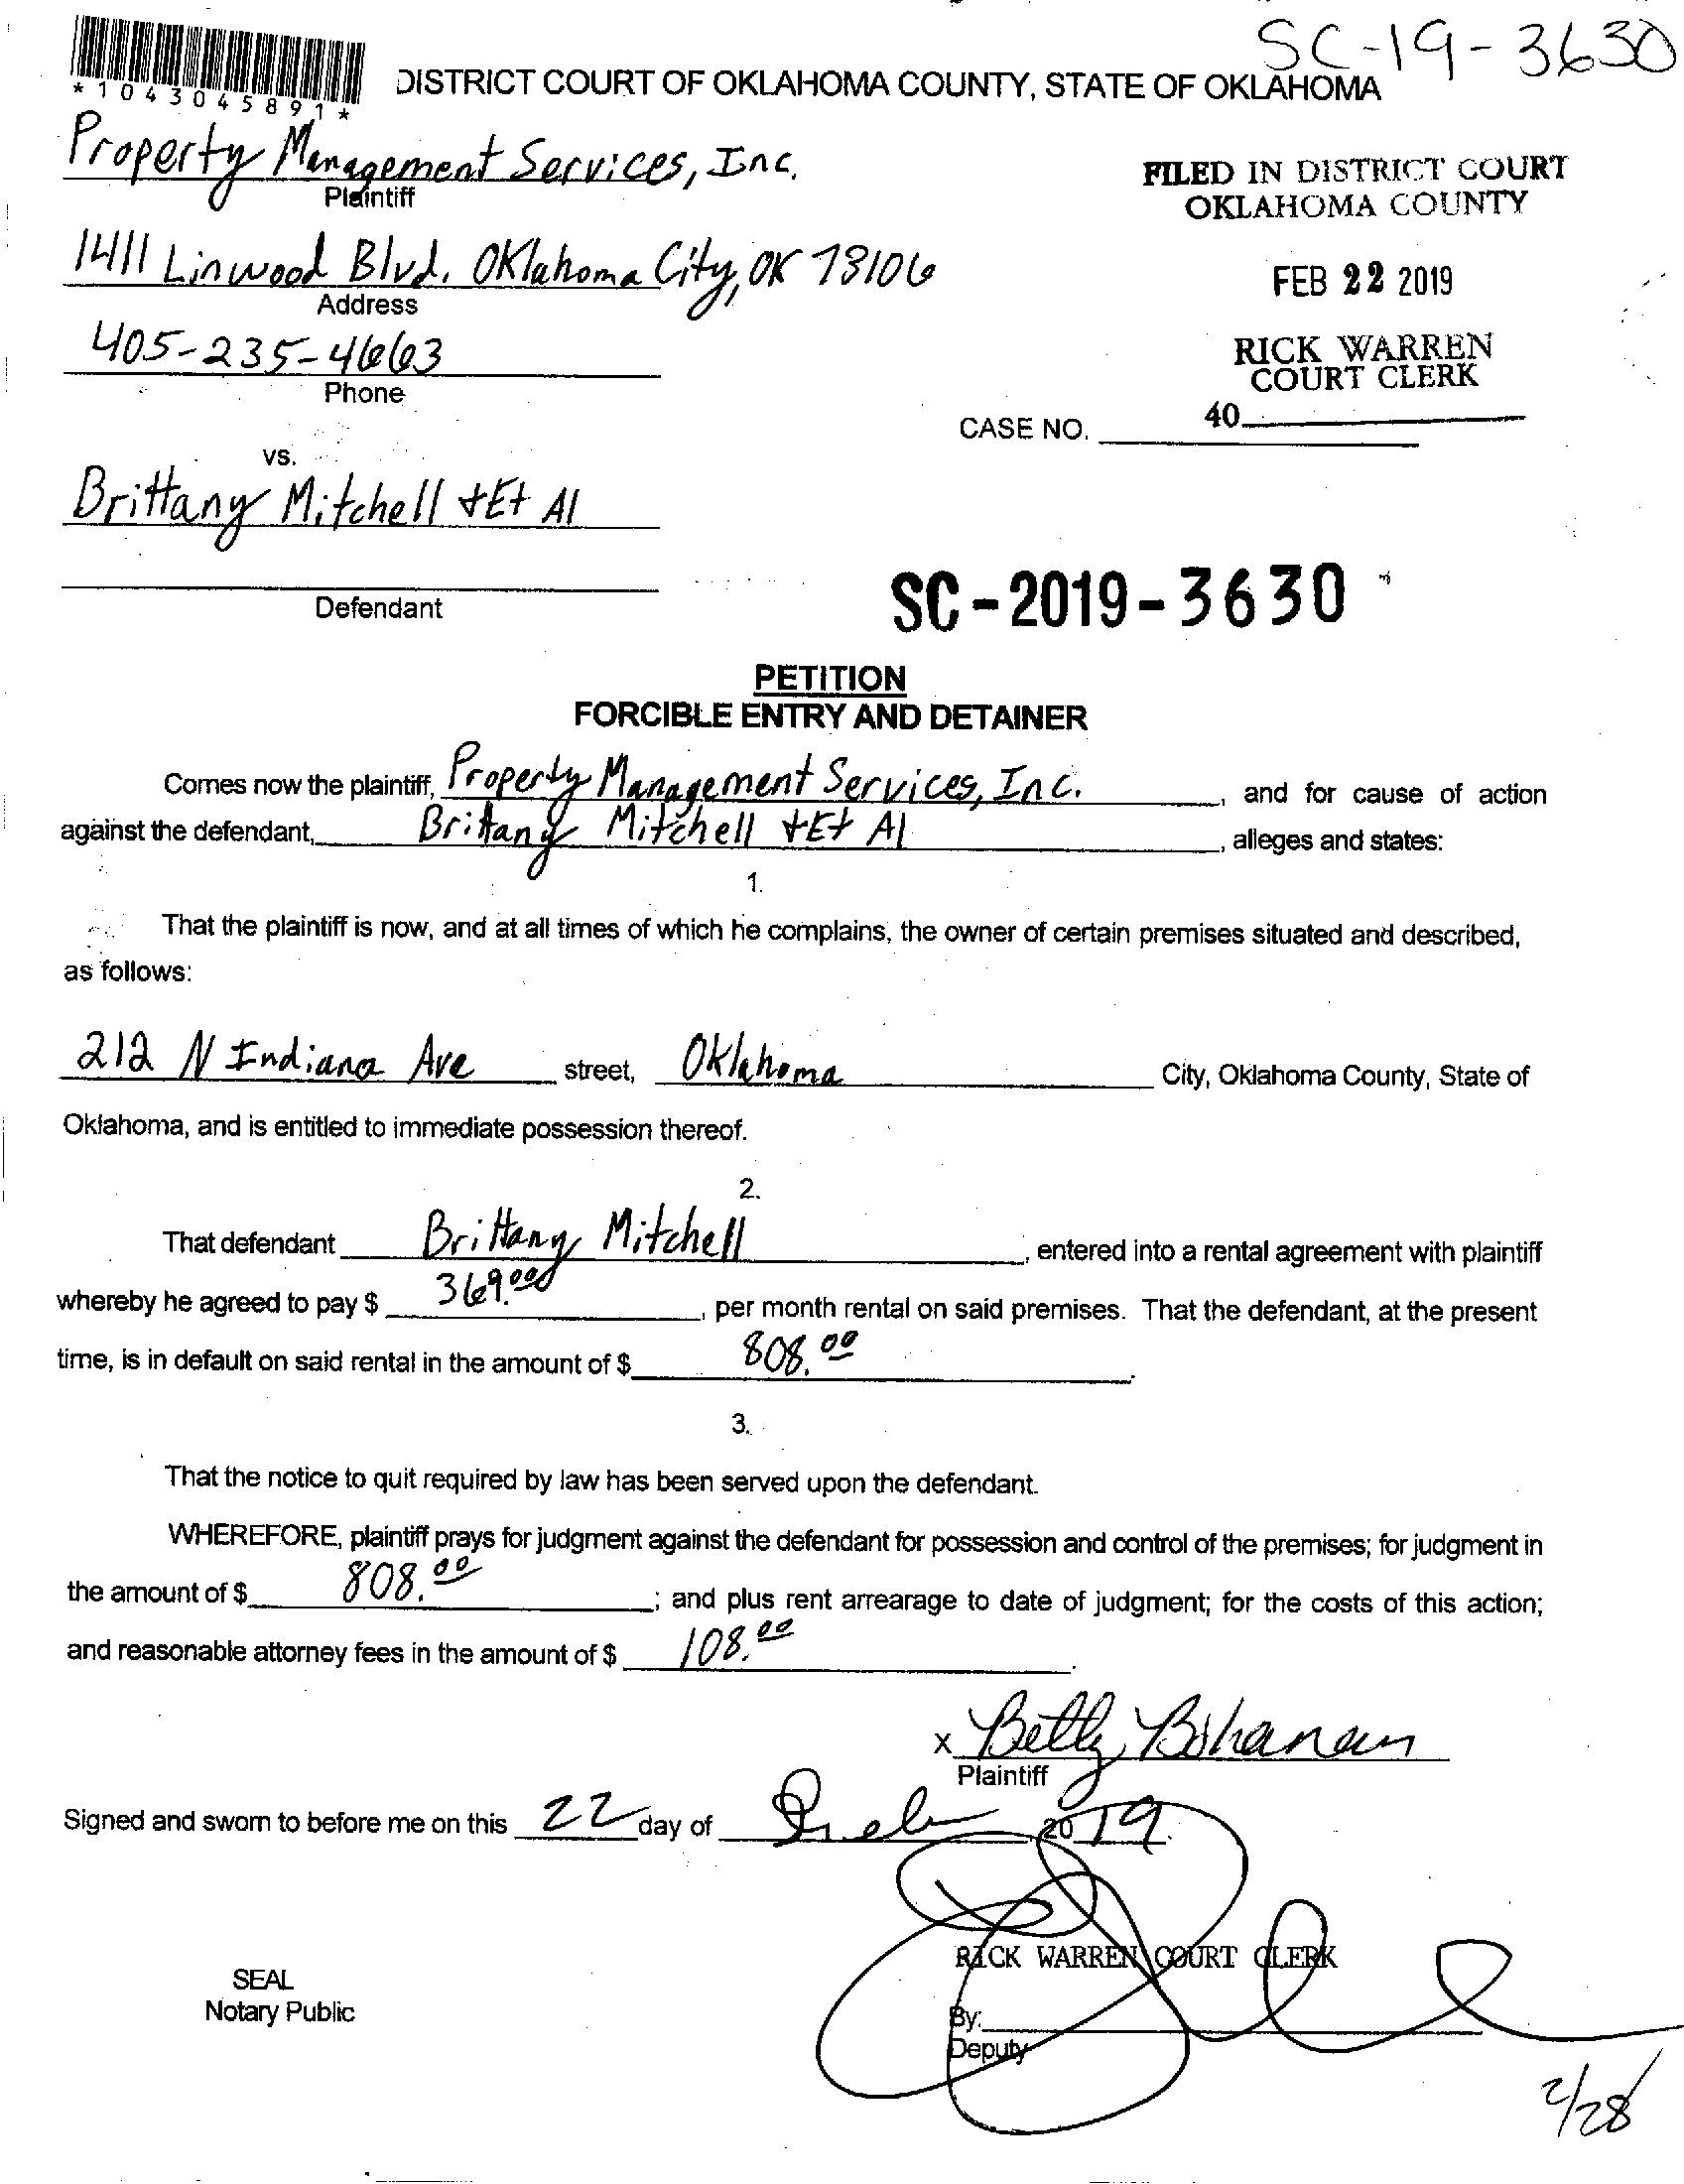 SC-19-3630
*1043045891*
DISTRICT COURT OF OKLAHOMA COUNTY, STATE OF OKLAHOMA
Property Management Services, Inc.
Plaintiff
FILED IN DISTRICT COURT
OKLAHOMA COUNTY
1411 Linwood Blvd. Oklahoma City, OK 73106
Address
FEB 22 2019
405-235-4663
Phone
RICK WARREN
COURT CLERK
40
CASE NO.
vs.
Brittany Mitchell + Et Al
Defendant
SC-2019-3630
PETITION
FORCIBLE ENTRY AND DETAINER
Comes now the plaintiff, Property Management Services, Inc. , and for cause of action
against the defendant, Brittany Mitchell + Et Al , alleges and states:
1.
That the plaintiff is now, and at all times of which he complains, the owner of certain premises situated and described,
as follows:
212 N Indiana Ave street, Oklahoma City, Oklahoma County, State of
Oklahoma, and is entitled to immediate possession thereof.
2.
That defendant Brittany Mitchell , entered into a rental agreement with plaintiff
whereby he agreed to pay $ 369.00 , per month rental on said premises. That the defendant, at the present
time, is in default on said rental in the amount of $ 808.00 .
3.
That the notice to quit required by law has been served upon the defendant.
WHEREFORE, plaintiff prays for judgment against the defendant for possession and control of the premises; for judgment in
the amount of $ 808.00 ; and plus rent arrearage to date of judgment; for the costs of this action;
and reasonable attorney fees in the amount of $ 108.00 .
x Betty Bohanan
Plaintiff
Signed and sworn to before me on this 22 day of Feb 2019.
RICK WARREN COURT CLERK
SEAL
Notary Public
By:
Deputy
2/28